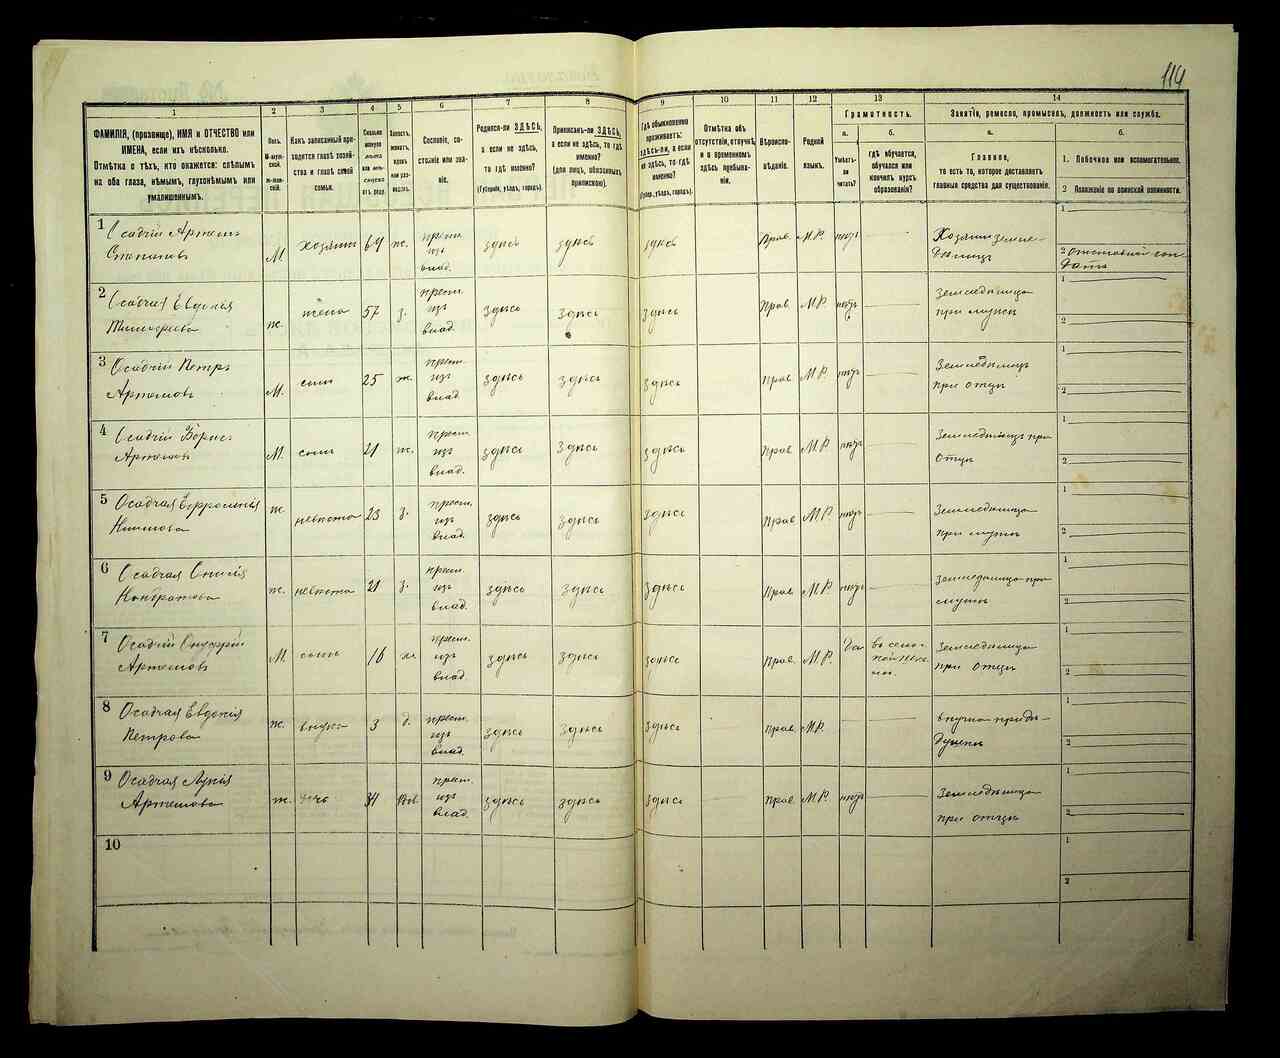 114
1 2 3 4 5 6 7 8 9 10 11 12 13 14
ФАМИЛІЯ, (прозвище), ИМЯ и ОТЧЕСТВО или ИМЕНА, если ихъ нѣсколько.
Отмѣтка о тѣхъ, кто окажется: слѣпымъ на оба глаза, нѣмымъ, глухонѣмымъ или умалишоннымъ.
Полъ.
М-мужской.
ж-женскій.
Какъ записанный приходится главѣ хозяйства и главѣ своей семьи.
Сословіе, состояніе или званіе.
Родился-ли ЗДѢСЬ, а если не здѣсь, то гдѣ именно?
(Губернія, уѣздъ, городъ).
Приписанъ-ли ЗДѢСЬ, а если не здѣсь, то гдѣ именно?
(для лицъ, обязанныхъ припискою).
Гдѣ обыкновенно проживаетъ: здѣсь-ли, а если не здѣсь, то гдѣ именно?
(Губерн., уѣздъ, городъ).
Отмѣтка объ отсутствіи, отлучкѣ и о временномъ здѣсь пребываніи.
Вѣроисповѣданіе.
Родной языкъ.
Грамотность.
а.
Умѣетъ-ли читать?
б.
гдѣ обучается, обучался или кончилъ курсъ образованія?
Занятіе, ремесло, промыселъ, должность или служба.
а.
Главное,
то есть то, которое доставляетъ главныя средства для существованія.
б.
1. Побочное или вспомогательное.
2 Положеніе по воинской повинности.
1 Осадчій Артемъ
М. хозяинъ 69 ж. крест. изъ влад. здѣсь здѣсь здѣсь Прав. М.Р. нѣтъ
Хозяинъ земледѣлецъ
1
2 Отставной солдатъ
2 Осадчая Евдокія
ж. жена 57 з. крест. изъ влад. здѣсь здѣсь здѣсь Прав. М.Р. нѣтъ
Земледѣлица при мужѣ
1
2
3 Осадчій Петръ Артемовъ
М. сынъ 25 ж. крест. изъ влад. здѣсь здѣсь здѣсь Прав. М.Р. нѣтъ
Земледѣлецъ при отцѣ
1
2
4 Осадчій Борисъ Артемовъ
М. сынъ 21 ж. крест. изъ влад. здѣсь здѣсь здѣсь Прав. М.Р. нѣтъ
Земледѣлецъ при отцѣ
1
2
5 Осадчая Евфросинія
ж невѣстка 23 з. крест. изъ влад. здѣсь здѣсь здѣсь Прав. М.Р. нѣтъ
Земледѣлица при мужѣ
1
2
6 Осадчая Кондратова
ж. невѣстка 21 з. крест. изъ влад. здѣсь здѣсь здѣсь Прав. М.Р. нѣтъ
Земледѣлица при мужѣ
1
2
7 Осадчій Онуфрій Артемовъ
М. сынъ 16 х. крест. изъ влад. здѣсь здѣсь здѣсь Прав. М.Р. Да
Земледѣлецъ при отцѣ
1
2
8 Осадчая Евдокія Петрова
ж. внучка 3 д. крест. изъ влад. здѣсь здѣсь здѣсь Прав. М.Р.
внучка при дѣдушкѣ
1
2
9 Осадчая Лукія Артемова
ж. дочь 34 Вдв. крест. изъ влад. здѣсь здѣсь здѣсь Прав. М.Р. нѣтъ
Земледѣлица при отцѣ
1
2
10
1
2